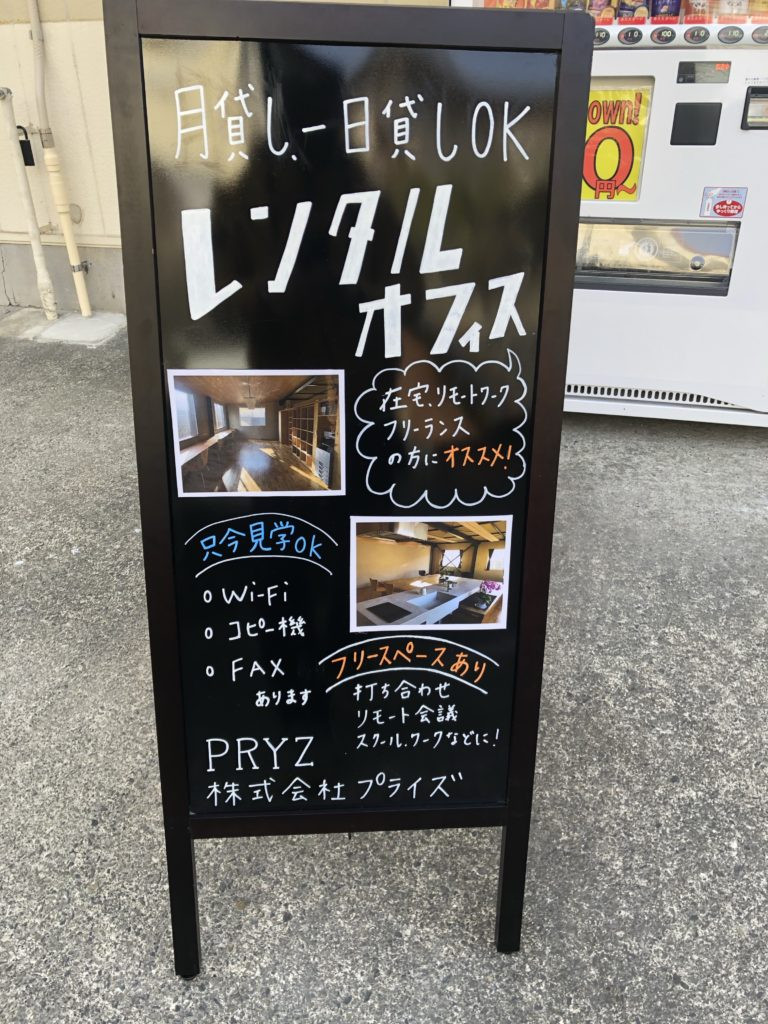 月貸し、一日貸しOK
レンタル
オフィス
在宅、リモートワーク
フリーランス
の方にオススメ!
只今見学OK
o Wi-Fi
o コピー機
o FAX
あります
フリースペースあり
打ち合わせ
リモート会議
スクール、ワークなどに!
PRYZ
株式会社プライズ
own!
0
円~